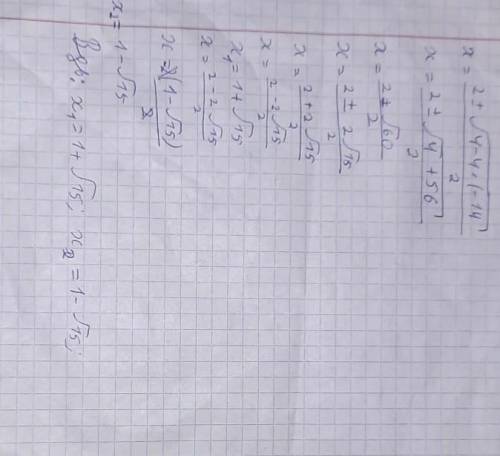 x = (2 ± √4-4·(-14)) / 2
x = (2 ± √4+56) / 2
x = (2 ± √60) / 2
x = (2 ± 2√15) / 2
x = (2+2√15) / 2
x = (2-2√15) / 2
x₁ = 1+√15
x = (2-2√15) / 2
x = 2(1-√15) / 2
x₂ = 1-√15
x₁ = 1+√15; x₂ = 1-√15;